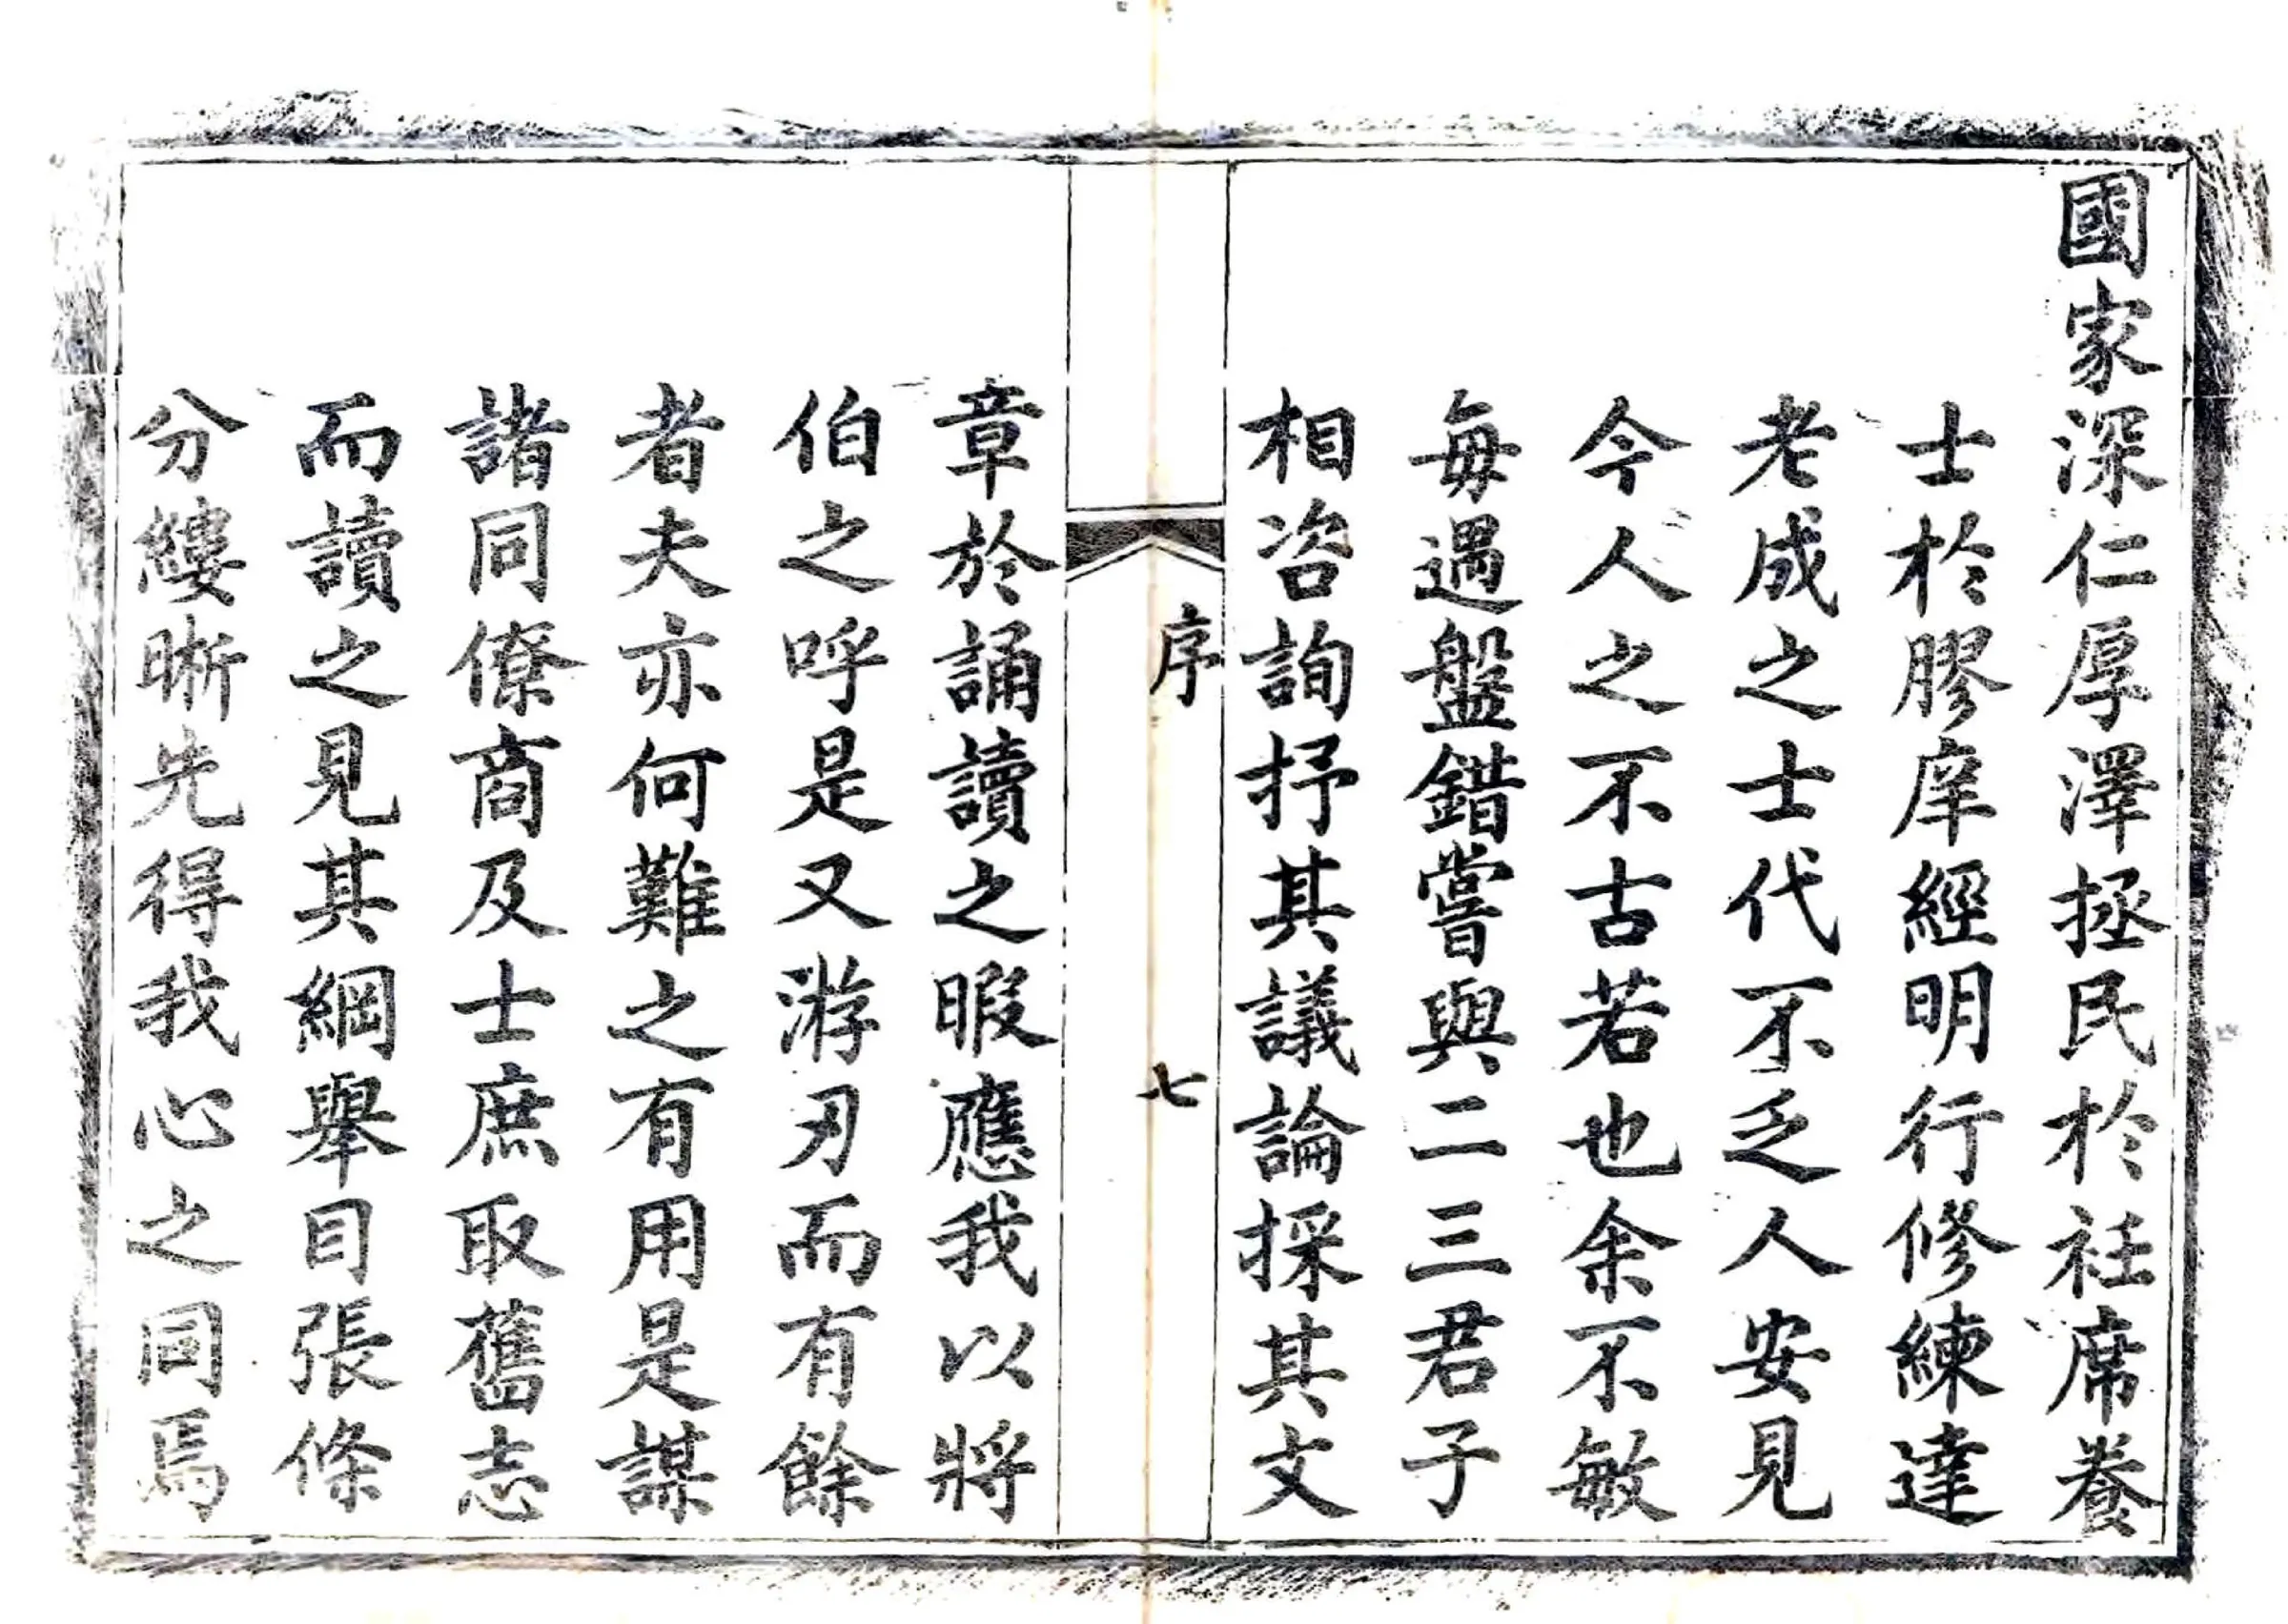 國家深仁厚澤拯民於衽席養
士於膠庠經明行修練達
老成之士代不乏人安見
今人之不古若也余不敏
每遇盤錯嘗與二三君子
相咨詢抒其議論採其文
序
七
章於誦讀之暇應我以將
伯之呼是又游刃而有餘
者夫亦何難之有用是謀
諸同僚商及士庶取舊志
而讀之見其綱舉目張條
分縷晰先得我心之同焉